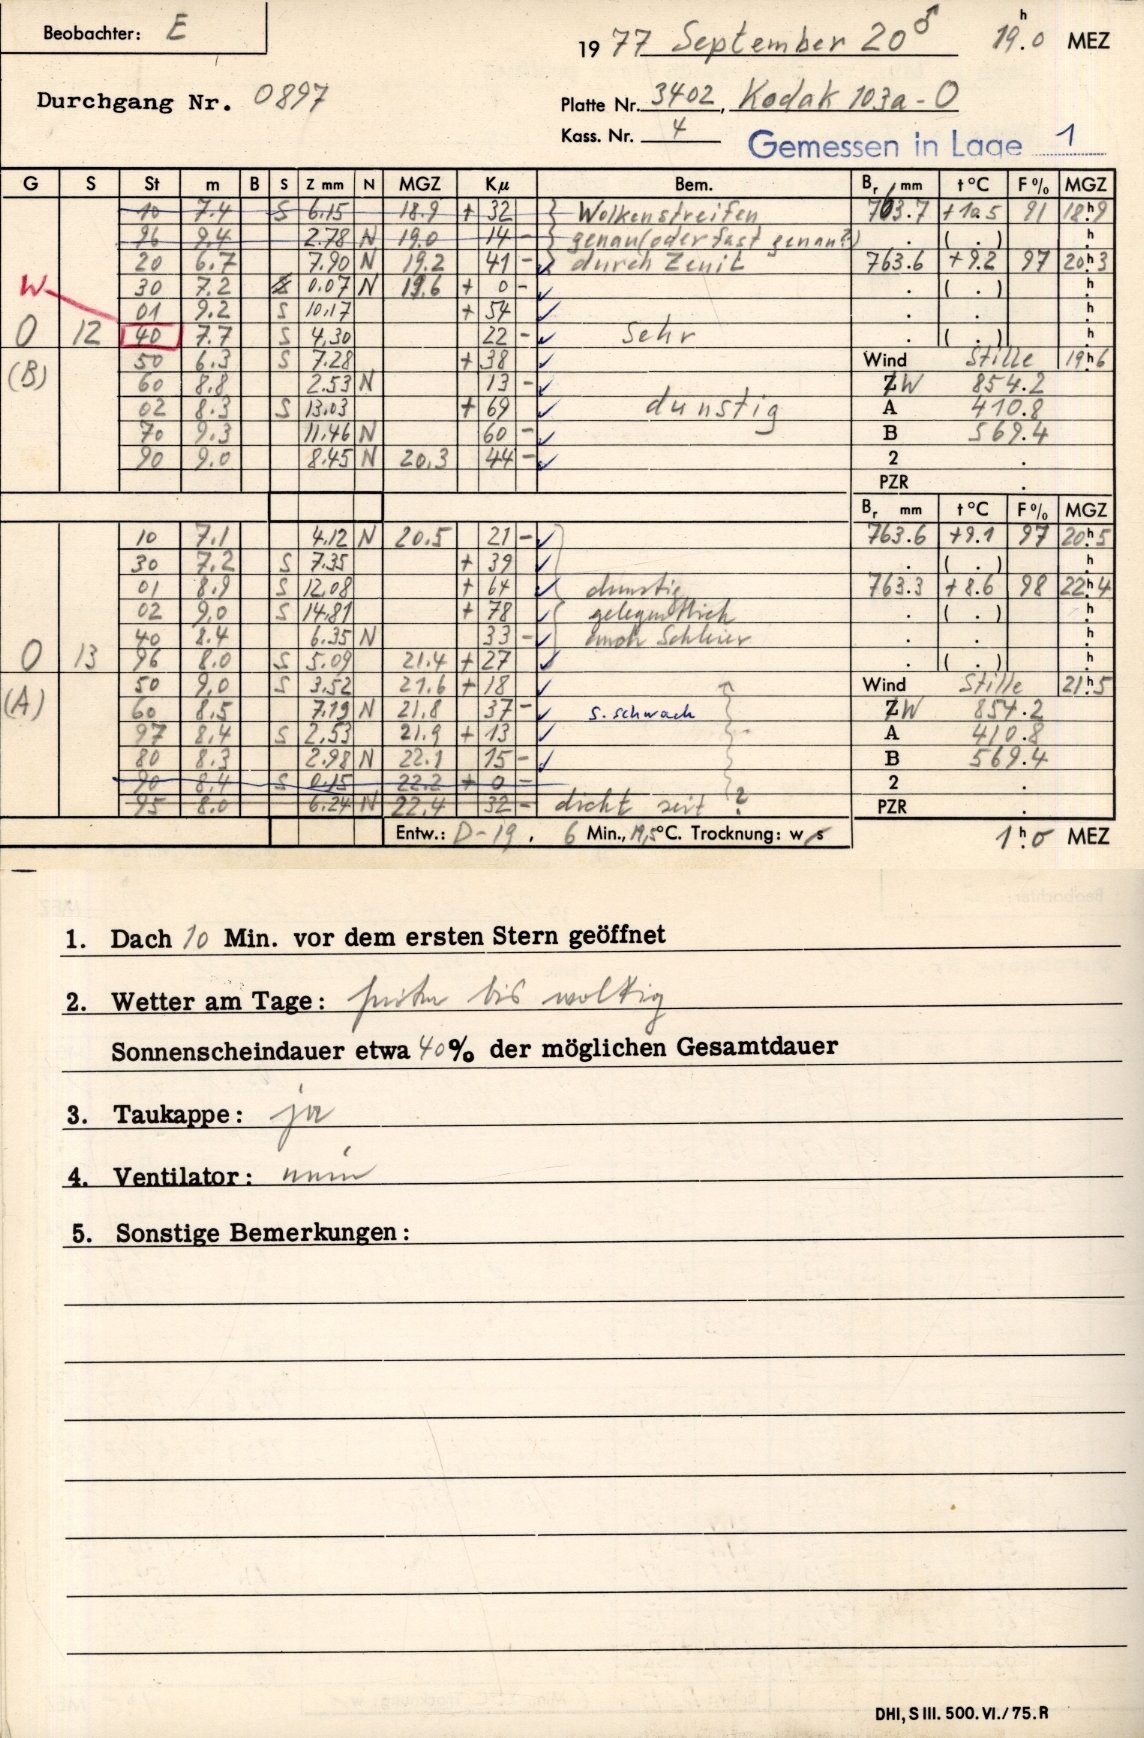 Beobachter: E
1977 September 20 ♂ 19h.0 MEZ
Durchgang Nr. 0897
Platte Nr. 3402, Kodak 103a-O
Kass. Nr. 4
Gemessen in Lage 1
G S St m B S Z mm N MGZ Kμ Bem. Br mm t °C F% MGZ
10 7.4 S 6.15 18.9 + 32 Wolkenstreifen 763.7 +10.5 91 18h9
96 9.4 2.78 N 19.0 14 - genau (oder fast genau?) . ( . ) h
20 6.7 7.90 N 19.2 41 - durch Zenit 763.6 +9.2 97 20h3
W 30 7.2 0.07 N 19.6 + 0 - . ( . ) h
01 9.2 S 10.17 + 54 . . h
0 12 40 7.7 S 4.30 22 - Sehr . ( . ) h
(B) 50 6.3 S 7.28 + 38 Wind Stille 19h6
60 8.8 2.53 N 13 - ZW 854.2
02 8.3 S 13.03 + 69 dunstig A 410.8
70 9.3 11.46 N 60 - B 569.4
90 9.0 8.45 N 20.3 44 - 2 .
PZR .
Br mm t °C F% MGZ
10 7.1 4.12 N 20.5 21 - 763.6 +9.1 97 20h5
30 7.2 S 7.35 + 39 . ( . ) h
01 8.9 S 12.08 + 64 dunstig 763.3 +8.6 98 22h4
02 9.0 S 14.81 + 78 gelegentlich . ( . ) h
40 8.4 6.35 N 33 - noch Schleier . . h
0 13 96 8.0 S 5.09 21.4 + 27 . ( . ) h
(A) 50 9.0 S 3.52 21.6 + 18 Wind Stille 21h5
60 8.5 7.19 N 21.8 37 - s. schwach ZW 854.2
97 8.4 S 2.53 21.9 + 13 A 410.8
80 8.3 2.98 N 22.1 15 - B 569.4
90 8.4 S 0.15 22.2 + 0 - 2 .
95 8.0 6.24 N 22.4 32 - dicht seit ? PZR .
Entw.: D-19, 6 Min., 19,5°C. Trocknung: w/s 1h.0 MEZ
1. Dach 10 Min. vor dem ersten Stern geöffnet
2. Wetter am Tage: heiter bis wolkig
Sonnenscheindauer etwa 40% der möglichen Gesamtdauer
3. Taukappe: ja
4. Ventilator: nein
5. Sonstige Bemerkungen:
DHI, S III. 500. VI./75. R